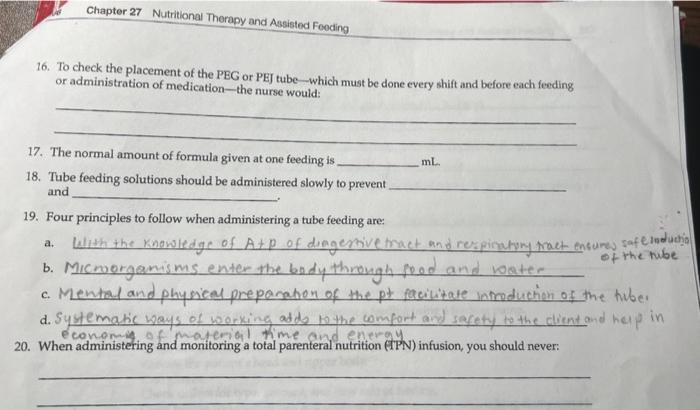 Chapter 27 Nutritional Therapy and Assisted Feeding
16. To check the placement of the PEG or PEJ tube—which must be done every shift and before each feeding
or administration of medication—the nurse would:
17. The normal amount of formula given at one feeding is mL.
18. Tube feeding solutions should be administered slowly to prevent
and .
19. Four principles to follow when administering a tube feeding are:
a. With the knowledge of A+P of diagestive tract and respiratory tract ensures safe induction
of the tube
b. Microorganisms enter the body through food and water
c. Mental and physical preparation of the pt facilitate introduction of the tube.
d. Systematic ways of working adds to the comfort and safety to the client and help in
economy of material time and energy
20. When administering and monitoring a total parenteral nutrition (TPN) infusion, you should never: